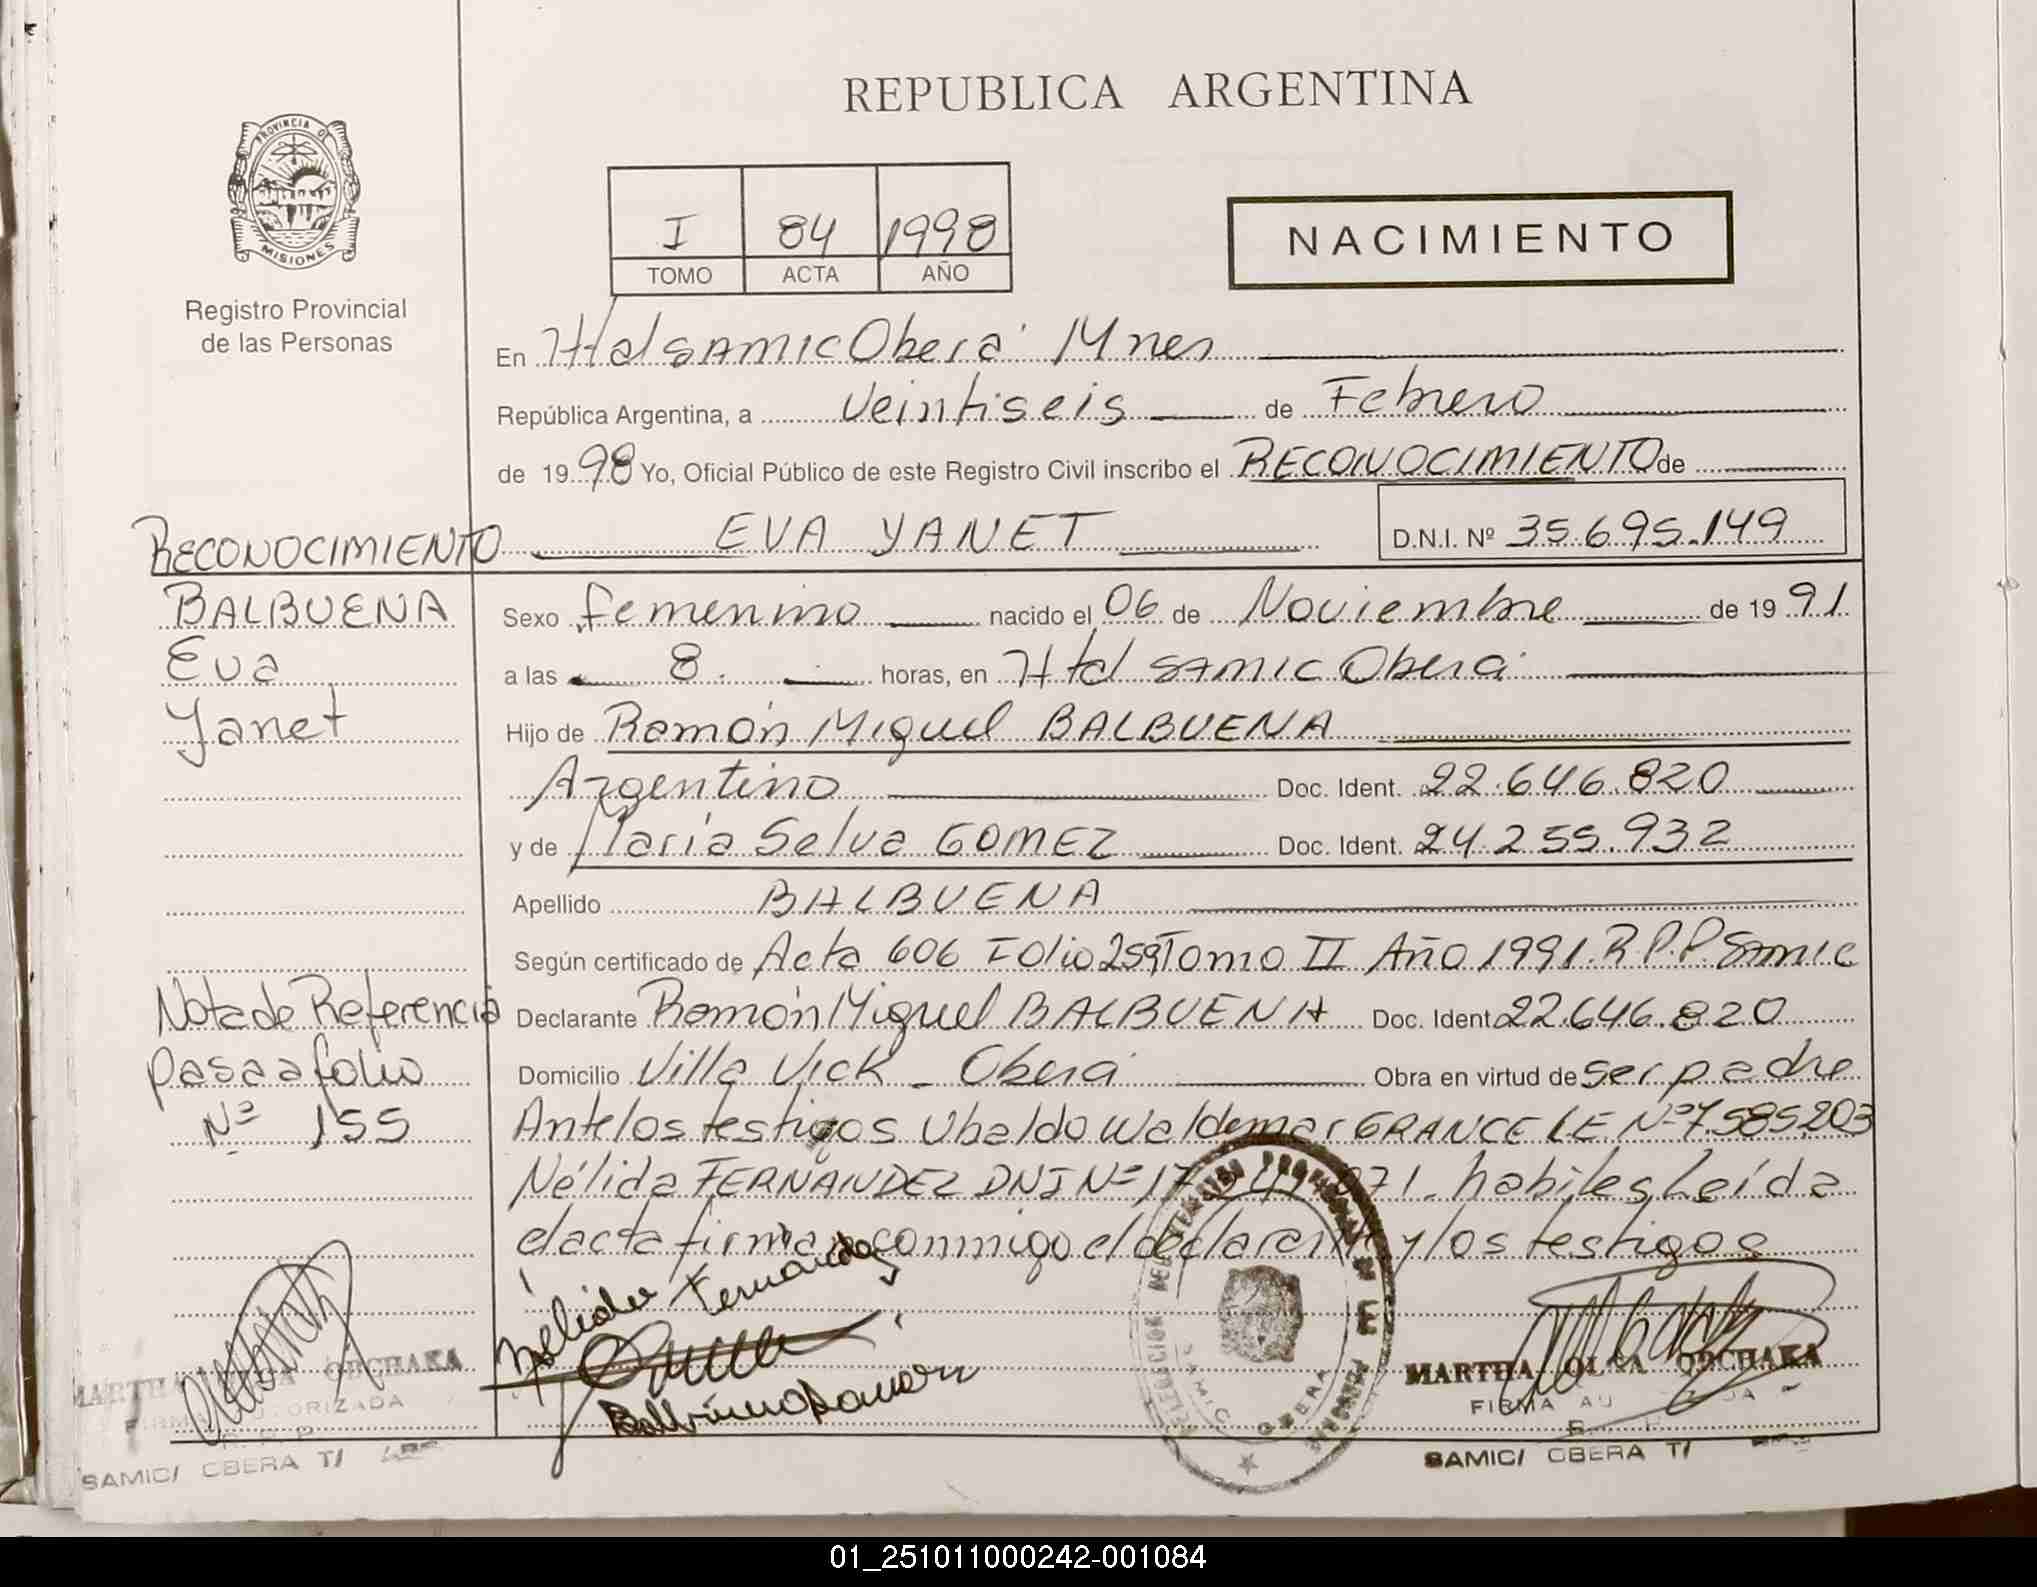 REPUBLICA ARGENTINA
PROVINCIA DE
MISIONES
Registro Provincial
de las Personas
I 84 1998
TOMO ACTA AÑO
NACIMIENTO
En Htal SAMIC Oberá Mnes
República Argentina, a Veintiseis de Febrero
de 1998 Yo, Oficial Público de este Registro Civil inscribo el RECONOCIMIENTO de
EVA YANET D.N.I. Nº 35.695.149
RECONOCIMIENTO
BALBUENA
Eva
Yanet
Sexo femenino nacido el 06 de Noviembre de 1991
a las 8. horas, en Htal SAMIC Oberá
Hijo de Ramón Miguel BALBUENA
Argentino Doc. Ident. 22.646.820
y de María Selva GOMEZ Doc. Ident. 24.255.932
Apellido BALBUENA
Según certificado de Acta 606 Folio 259 Tomo II Año 1991. R.P.P. SAMIC
Declarante Ramón Miguel BALBUENA Doc. Ident 22.646.820
Domicilio Villa Vick - Oberá Obra en virtud de ser padre
Nota de Referencia
pasa a folio
Nº 155
Ante los testigos Ubaldo Waldemar GRANCE LE Nº 7.585.203
Nélida FERNANDEZ DNI Nº 17 071. habiles Leída
el acta firman conmigo el declarante y los testigos
Nelida Fernandez
Balbuena Ramon
SAMIC
OBERA
MARTHA OLGA OBCHAKA
FIRMA AUTORIZADA
R P P
SAMIC/ OBERA T/
MARTHA OLGA OBCHAKA
FIRMA AU DA
SAMIC/ OBERA T/
01_251011000242-001084